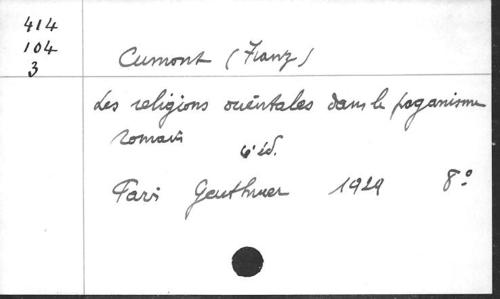 414
104
3
Cumont (Franz)
Les religions orientales dans le paganisme
romain 4e éd.
Paris Geuthner 1929 8°